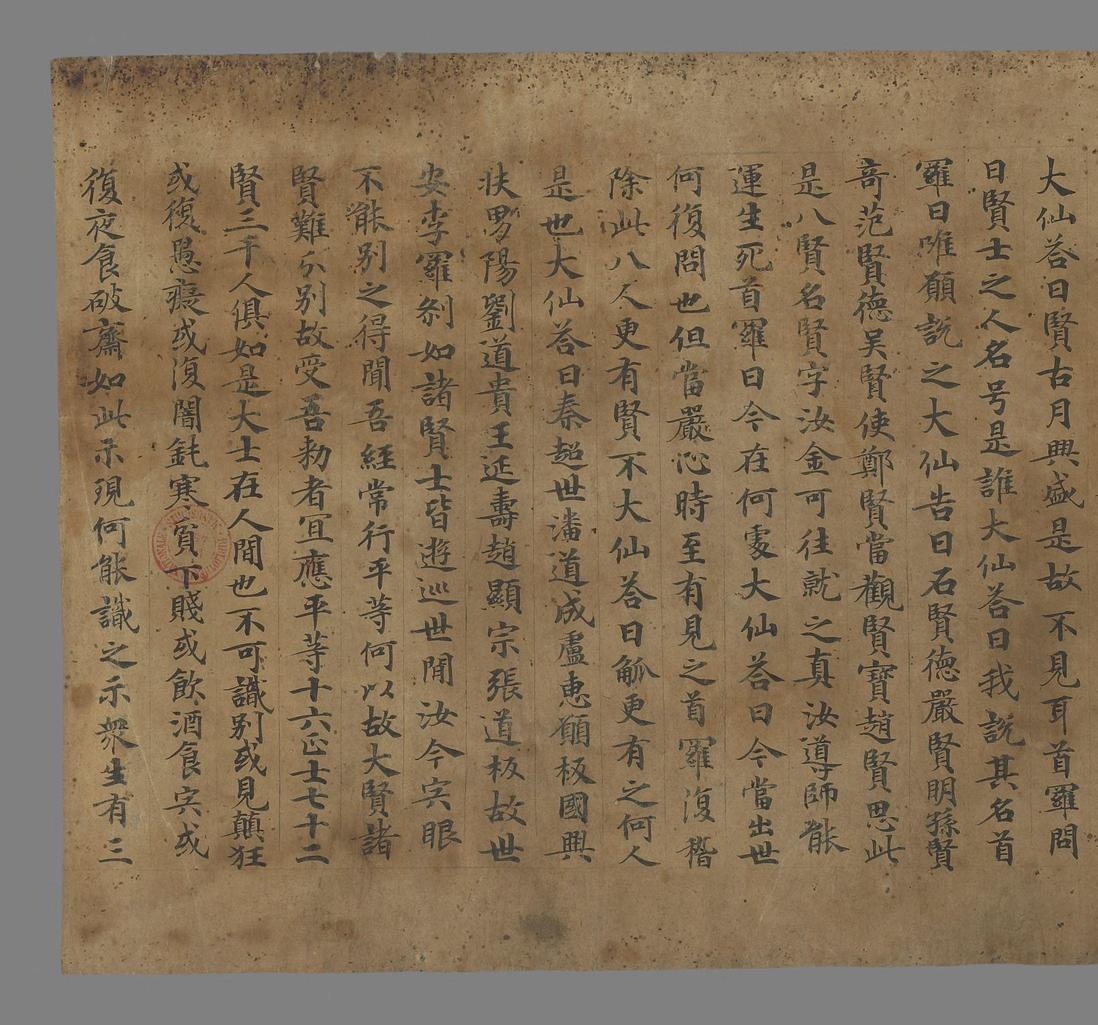 大仙荅曰賢古月興盛是故不見耳首羅問
曰賢士之人名号是誰大仙荅曰我說其名首
羅曰唯願說之大仙告曰石賢德嚴賢明孫賢
奇范賢德吴賢使鄭賢當觀賢寶趙賢思此
是八賢名賢字汝金可往就之真汝導師能
運生死首羅曰今在何處大仙荅曰今當出世
何復問也但當嚴心時至有見之首羅復稽
除此八人更有賢不大仙荅曰觚更有之何人
是也大仙荅曰秦超世潘道成盧惠願板國興
扶男陽劉道貴王延壽趙顯宗張道板故世
安李羅刹如諸賢士皆遊巡世間汝今宍眼
不能別之得聞吾經常行平等何以故大賢諸
賢難分別故受吾勑者宜應平等十六正士七十二
賢三千人俱如是大士在人間也不可識別或見顛狂
或復愚癡或復闇鈍寒貧下賤或飲酒食宍或
復夜食破齋如此示現何能識之示衆生有三